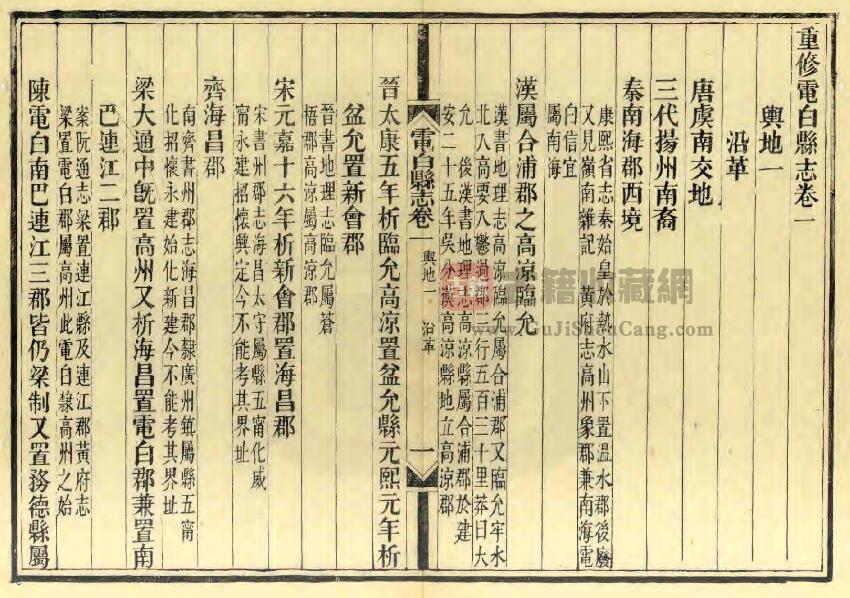 重修電白縣志卷一
輿地一
沿革
唐虞南交地
三代揚州南裔
秦南海郡西境
康熙省志秦始皇於熱水山下置溫水郡後廢
又見嶺南雜記　黃府志高州象郡兼南海電
白信宜
屬南海
漢屬合浦郡之高涼臨允
漢書地理志高涼臨允屬合浦郡又臨允牢水
北入高要入鬱過郡三行五百三十里莽曰大
允　後漢書地理志高涼縣屬合浦郡於建
安二十五年吳分漢高涼縣地立高涼郡
電白縣志卷一
輿地一　沿革
一
晉太康五年析臨允高涼置盆允縣元熙元年析
盆允置新會郡
晉書地理志臨允屬蒼
梧郡高涼屬高涼郡
宋元嘉十六年析新會郡置海昌郡
宋書州郡志海昌太守屬縣五甯化威
甯永建招懷興定今不能考其界址
齊海昌郡
南齊書州郡志海昌郡隸廣州鎮屬縣五甯
化招懷永建始化新建今不能考其界址
梁大通中旣置高州又析海昌置電白郡兼置南
巴連江二郡
案阮通志梁置連江縣及連江郡黃府志
梁置電白郡屬高州此電白隸高州之始
陳電白南巴連江三郡皆仍梁制又置務德縣屬
古籍收藏網
www.GuJiShouCang.com